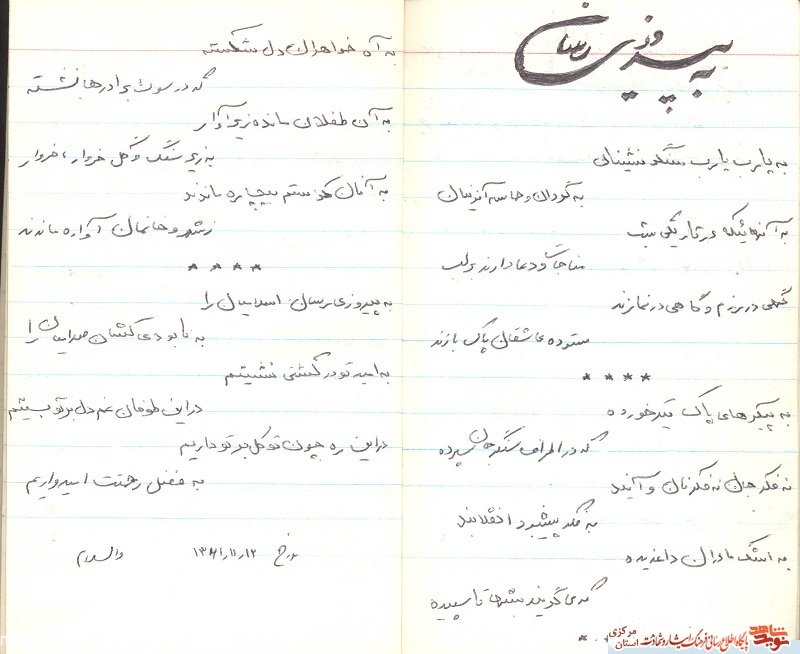 به پیروزی رسان
به یارب یارب سنگر نشینانی
به گردان و حماسه آفرینان
به آنهائیکه در تاریکی شب
مناجات و دعا دارند بر لب
گهی در رزم و گاهی در نمازند
ستوده عاشقان پاک بازند
****
به پیکرهای پاک تیر خورده
که در اطراف سنگر جان سپرده
نه فکر جان نه فکر نان و آبند
به فکر پیشبرد انقلابند
به اشک مادران داغدیده
که می گویند شبها تا سپیده
* *
به آه خواهران دل شکسته
که در سوگ برادرها نشسته
به آن طفلان مانده زیر آوار
به زیر سنگ و گل خروار، خروار
به آنان کز ستم بیچاره ماندند
ز شهر و خانمان آواره ماندند
****
به پیروزی رسان اسلامیان را
به نابودی کشان صدامیان را
به امید تو در کشتی نشستیم
در این طوفان غم دل بر تو بستیم
در این ره چون توکل بر تو داریم
به فضل رحمتت امیدواریم
مورخ ۱۳۶۱/۱۱/۱۲ والسلام
نوید شاهد
پایگاه اطلاع رسانی فرهنگ ایثار و شهادت استان مرکزی